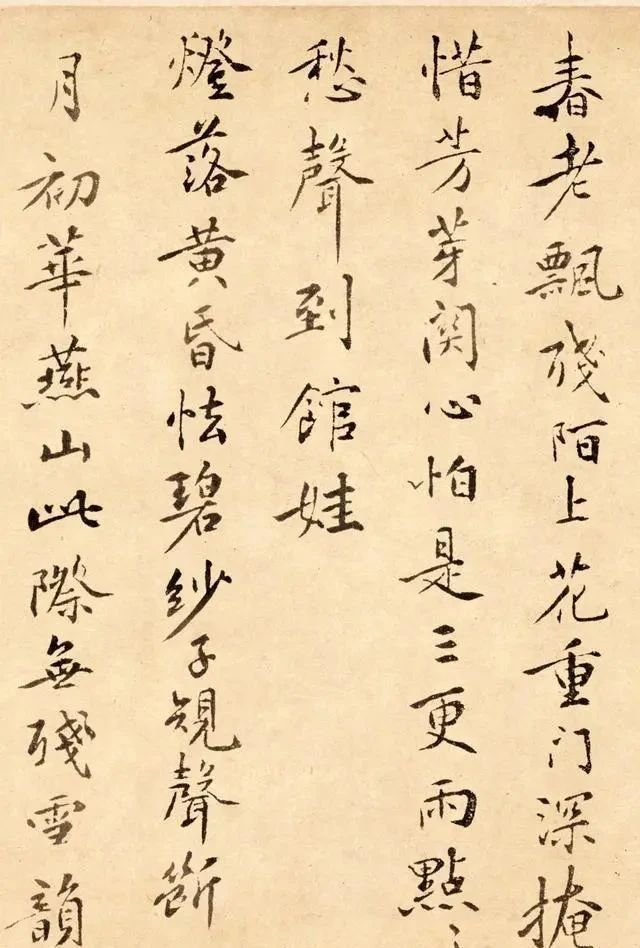 春老飄殘陌上花重门深掩
惜芳芽関心怕是三更雨點〻
愁聲到館娃
燈落黄昏怯碧紗子規聲斷
月初華燕山此際無殘雪韻